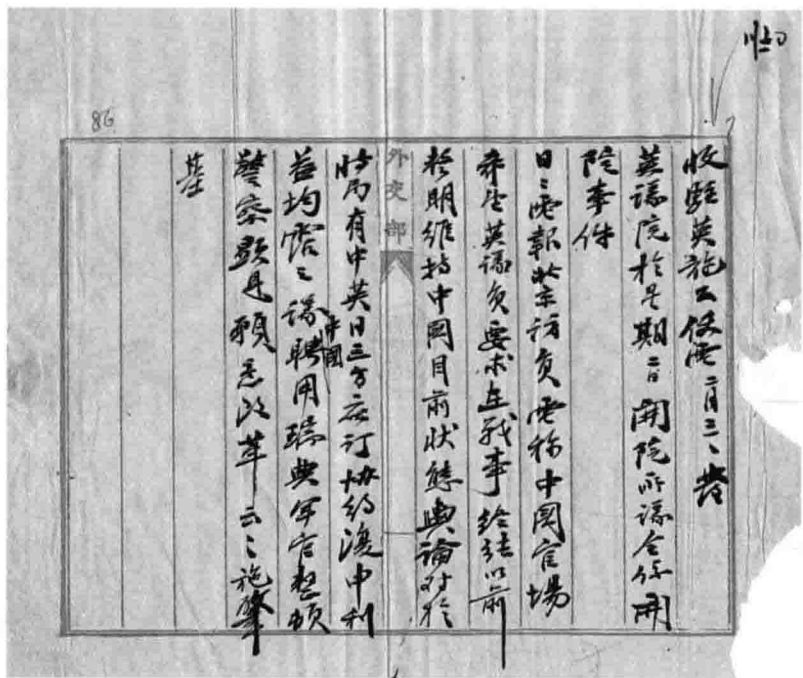 收駐英施公使電 二月三日發
英議院於星期二日開院所議全係開
院事件
日日電報北京訪員電稱中國官場
希望英議員要求在戰事終結以前
將明維持中國目前狀態輿論對於
外交部
時局有中英日三方應訂協約護中利
益均霑之議中國聘用瑞典軍官整頓
警察顯見願意改革云云施肇
基
86